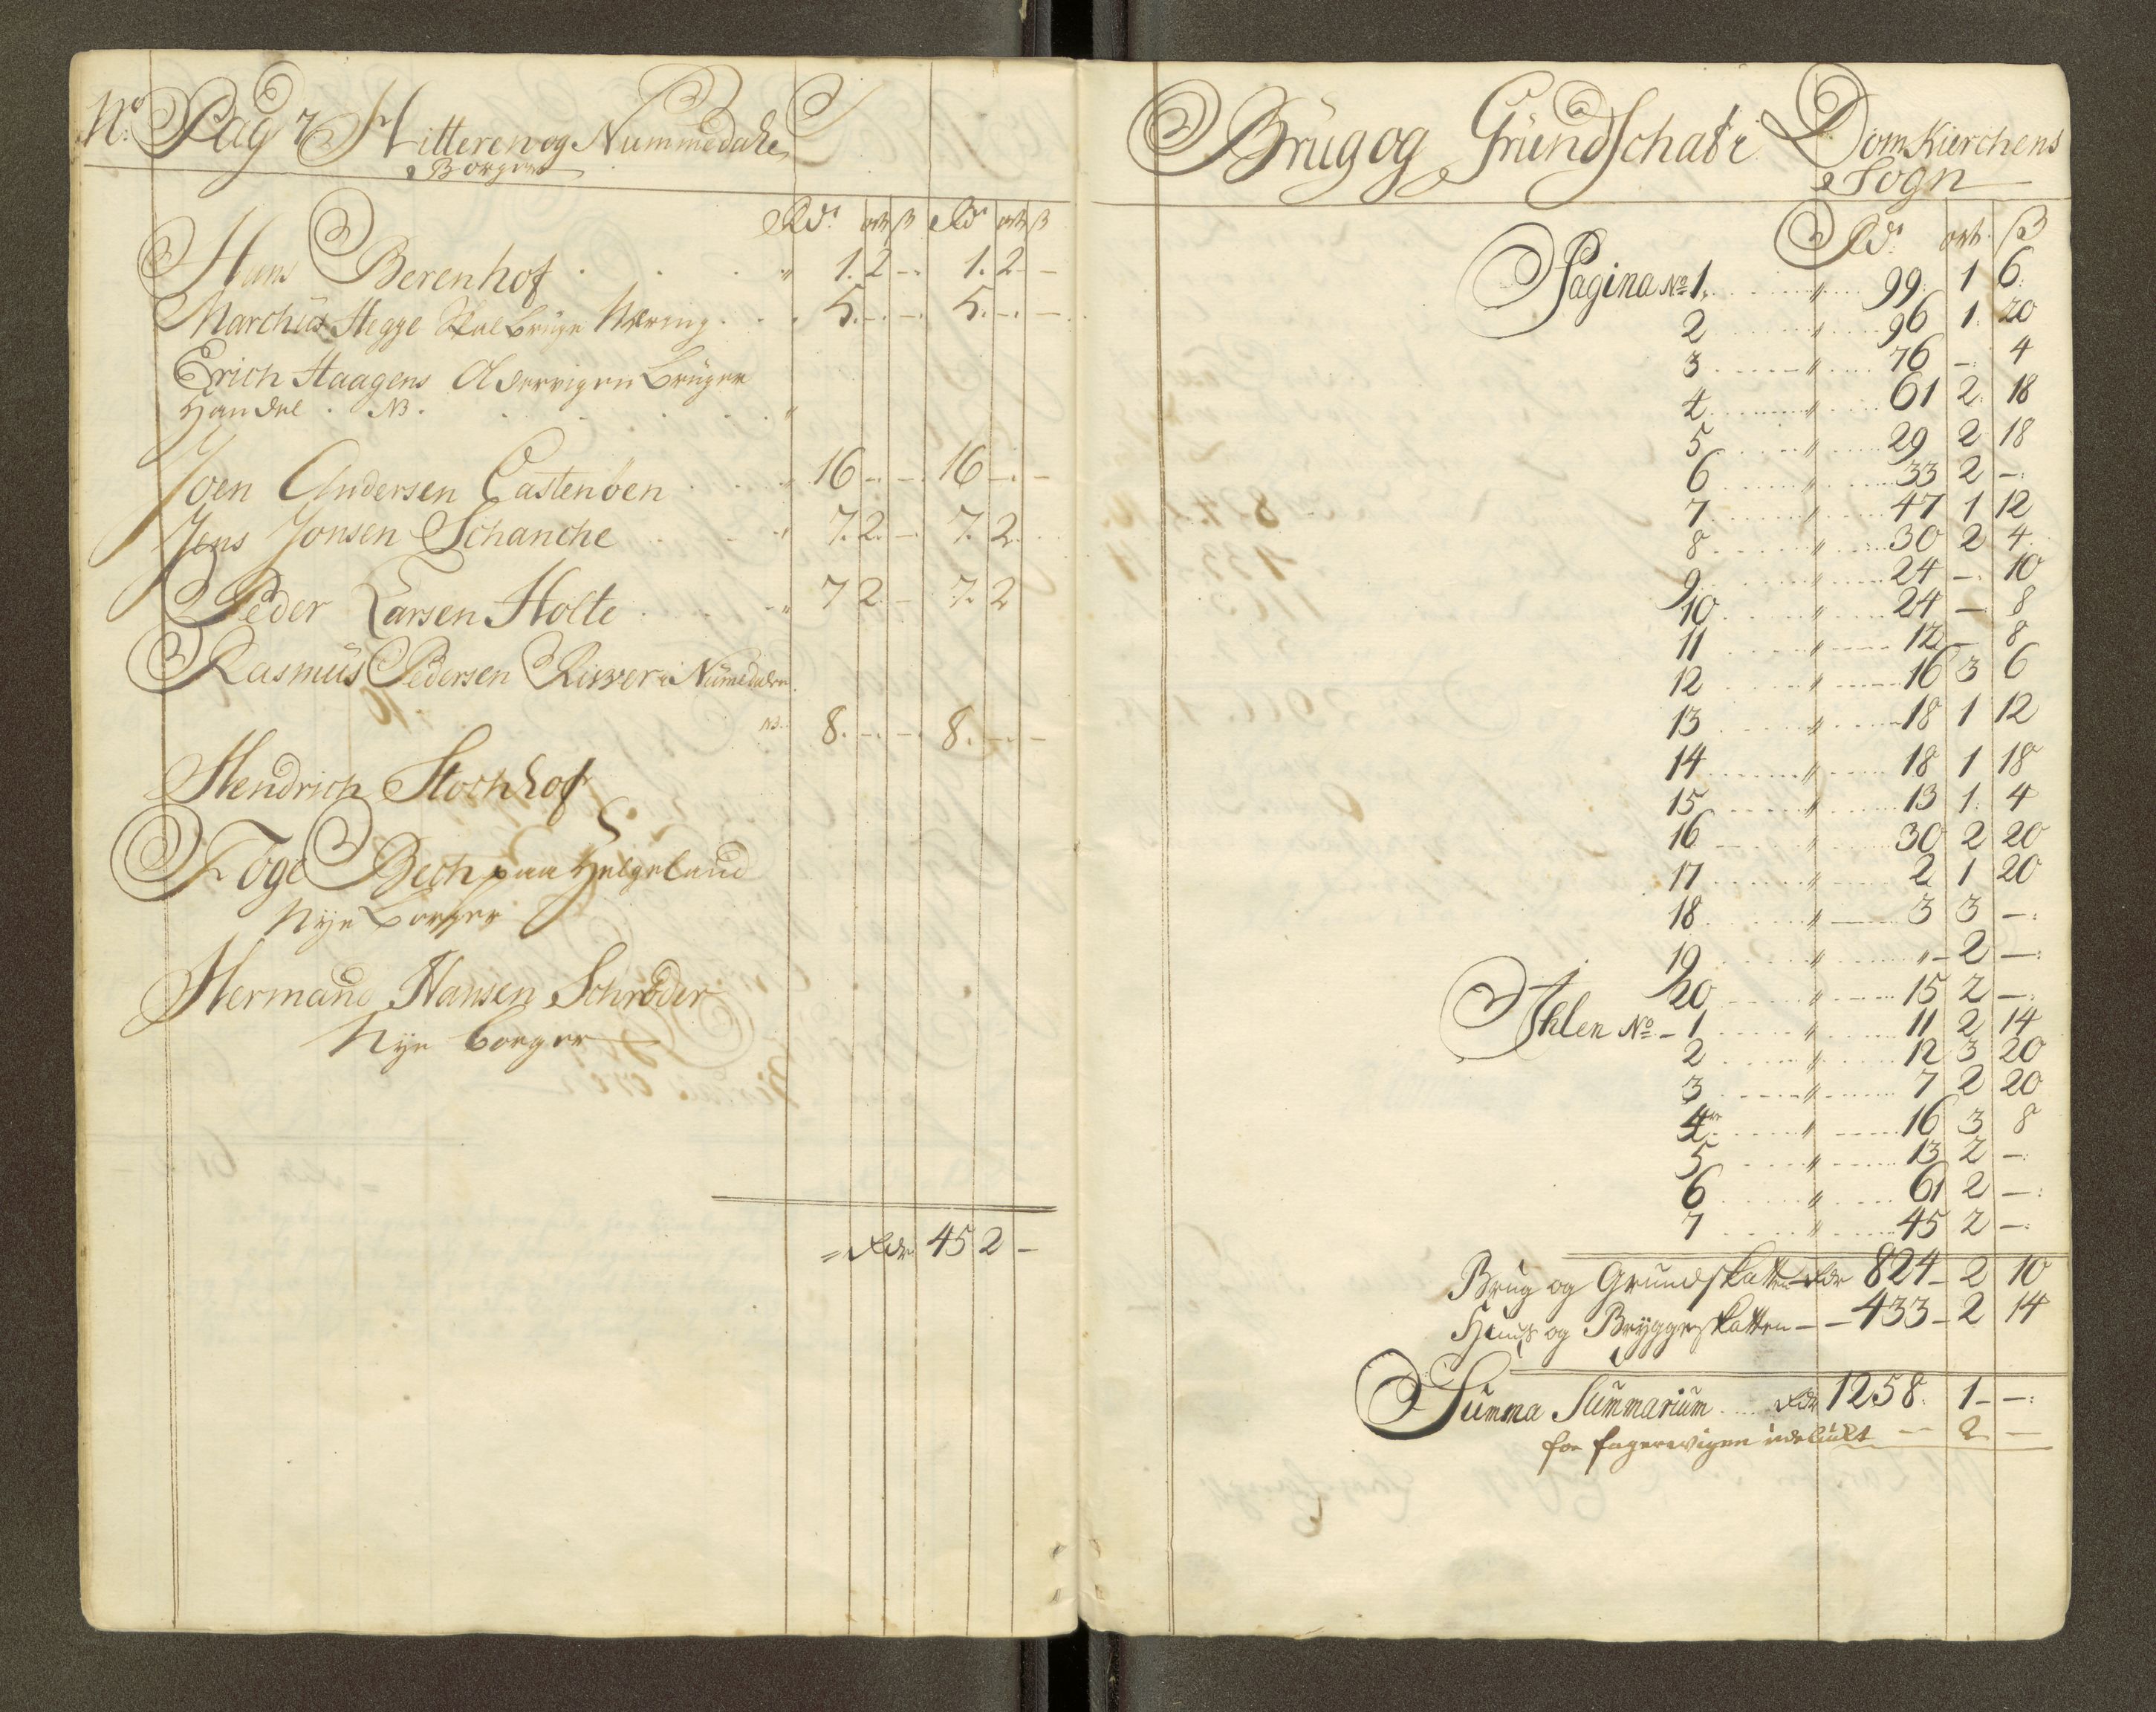 No: Pag 7 Hitteren og Nummedahls
Borgere
Rdr ort ß Rdr ort ß
Hans Berenhof . . . " 1. 2 -. 1. 2 -
Marchus Hegge Skal bruge Næring . . . 5. -. -. 5. -. -
Erich Haagens Aldeeles ingen bruger
Handel . NB. . . . "
Joen Andersen Castenoen . . " 16 -. -. 16 -. -
Jens Jonsen Schanche . . " 7. 2. -. 7. 2.
Peder Larsen Holte . . " 7 2. - 7. 2
Rasmus Pedersen Risver i Numedalen
NB. 8. -. -. 8. -. -
Hendrich Stochhof
Toge Bech paa Helgeland
Nye Borger
Hermand Hansen Schrøder
Nye borger
= Rdr 45 2 -
Brug og Grund Schatt i Dom Kierchens
Sogn
Rdr ort ß
Pagina No 1. " 99. 1 6.
2 " 96 1. 20
3 " 76 -. 4
4 " 61 2. 18
5 " 29 2 18
6 " 33 2 -:
7 " 47 1 12
8 " 30 2 4.
9 " 24 -. 10
10 " 24 - 8
11 " 12 - 8
12 " 16 3 6
13 " 18 1 12
14 " 18 1 18
15 " 13 1. 4
16 " 30 2 20
17 " 2 1 20
18 " 3 3 -:
19 " " - 2 -:
20 " 15 2 -:
Ihlen No - 1 " 11 2 14
2 " 12 3 20
3 " 7 2 20
4 " 16 3 8
5 " 13 2 -:
6 " 61 2 -:
7 " 45 2 -:
Brug og Grundskatten Rdr 824 - 2 10
Huus og Bryggerskatten - - 433 - 2 14
Summa Summarium .... Rdr 1258. 1 - -:
for fagerevigen udelukt - 2 -